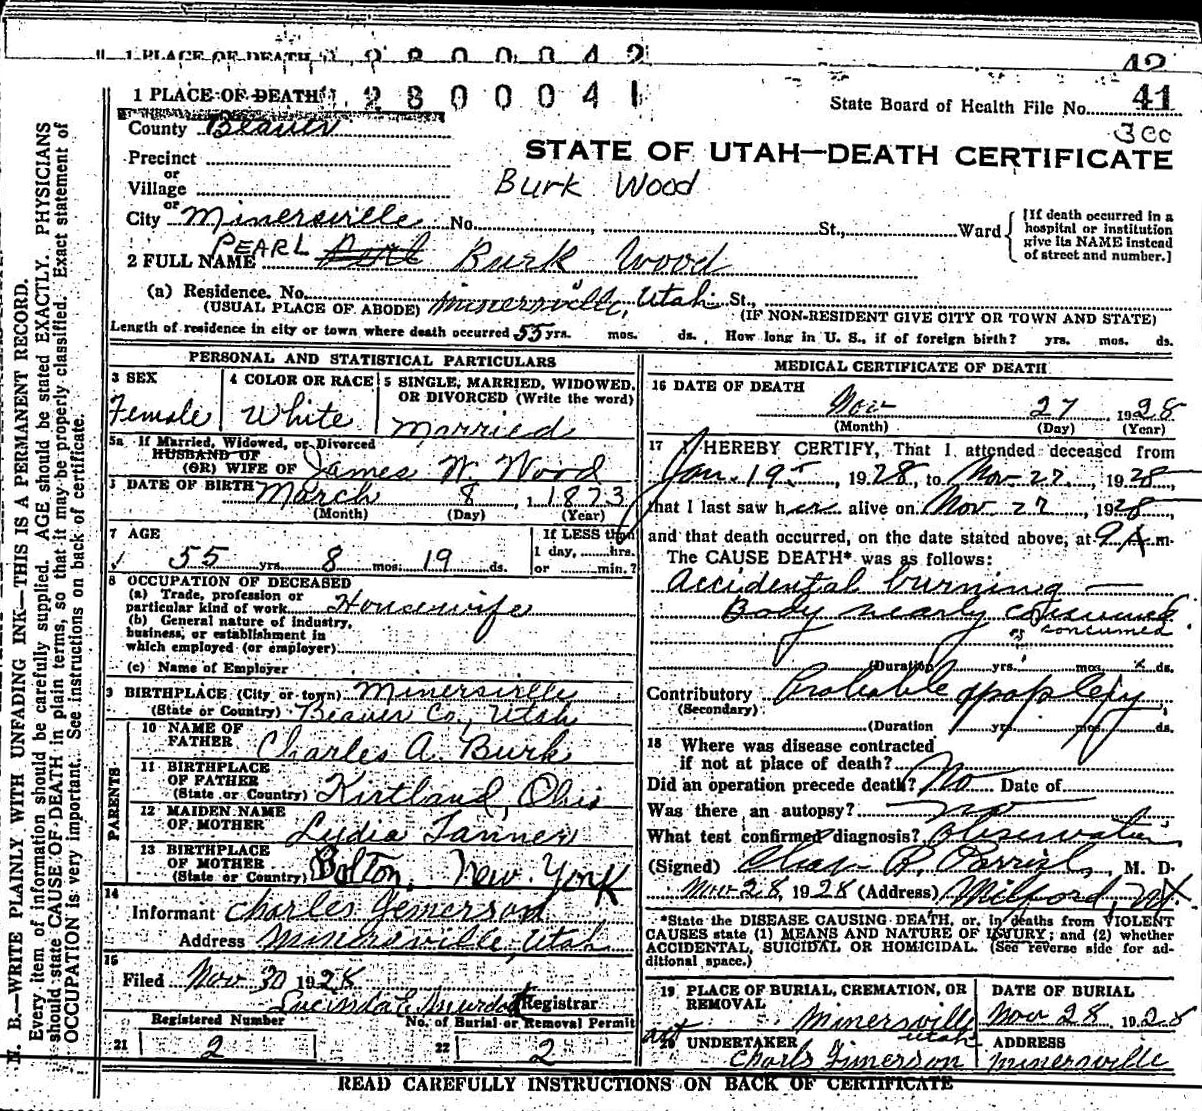 1 PLACE OF DEATH 2 8 0 0 0 4 2 42
1 PLACE OF DEATH 2 8 0 0 0 4 1
State Board of Health File No. 41
3cc
County Beaver
STATE OF UTAH—DEATH CERTIFICATE
Precinct
or
Village
Burk Wood
or
City Minersville No. , St., Ward
[If death occurred in a
hospital or institution
give its NAME instead
of street and number.]
2 FULL NAME PEARL Burk Wood
(a) Residence. No. Minersville, Utah St.,
(USUAL PLACE OF ABODE) (IF NON-RESIDENT GIVE CITY OR TOWN AND STATE)
Length of residence in city or town where death occurred 55 yrs. mos. ds. How long in U. S., if of foreign birth? yrs. mos. ds.
PERSONAL AND STATISTICAL PARTICULARS
3 SEX
Female
4 COLOR OR RACE
White
5 SINGLE, MARRIED, WIDOWED,
OR DIVORCED (Write the word)
Married
5a If Married, Widowed, or Divorced
HUSBAND OF
(OR) WIFE OF James W Wood
DATE OF BIRTH March 8, 1873
(Month) (Day) (Year)
7 AGE
55 yrs. 8 mos. 19 ds.
If LESS than
1 day, hrs.
or min.?
8 OCCUPATION OF DECEASED
(a) Trade, profession or
particular kind of work Housewife
(b) General nature of industry,
business, or establishment in
which employed (or employer)
(c) Name of Employer
9 BIRTHPLACE (City or town) Minersville
(State or Country) Beaver Co., Utah
PARENTS
10 NAME OF
FATHER Charles A. Burk
11 BIRTHPLACE
OF FATHER
(State or Country) Kirtland, Ohio
12 MAIDEN NAME
OF MOTHER Lydia Tanner
13 BIRTHPLACE
OF MOTHER
(State or Country) Bolton, New York
14
Informant Charles Gemerson
Address Minersville, Utah
15
Filed Nov 30 1928
Lucinda E Murdock Registrar
Registered Number
21 2
No. of Burial or Removal Permit
22 2
MEDICAL CERTIFICATE OF DEATH
16 DATE OF DEATH
Nov 27 1928
(Month) (Day) (Year)
17 I HEREBY CERTIFY, That I attended deceased from
Jan. 19, 1928, to Nov 27, 1928,
that I last saw her alive on Nov 27, 1928,
and that death occurred, on the date stated above, at 9 A.m.
The CAUSE DEATH* was as follows:
Accidental burning —
Body nearly consumed
consumed
(Duration yrs. mos. ds.
Contributory Probable apoplexy
(Secondary)
(Duration yrs. mos. ds.
18 Where was disease contracted
if not at place of death?
Did an operation precede death? No Date of
Was there an autopsy? no
What test confirmed diagnosis? Observation
(Signed) Chas R. Parrish, M. D.
Nov 28, 1928 (Address) Milford, Ut.
*State the DISEASE CAUSING DEATH, or, in deaths from VIOLENT
CAUSES state (1) MEANS AND NATURE OF INJURY; and (2) whether
ACCIDENTAL, SUICIDAL OR HOMICIDAL. (See reverse side for ad-
ditional space.)
19 PLACE OF BURIAL, CREMATION, OR
REMOVAL Minersville
Utah
DATE OF BURIAL
Nov 28 1928
20 UNDERTAKER
Charls Gimerson
ADDRESS
Minersville
READ CAREFULLY INSTRUCTIONS ON BACK OF CERTIFICATE
N. B.—WRITE PLAINLY WITH UNFADING INK—THIS IS A PERMANENT RECORD.
Every item of information should be carefully supplied. AGE should be stated EXACTLY. PHYSICIANS
should state CAUSE OF DEATH in plain terms, so that it may be properly classified. Exact statement of
OCCUPATION is very important. See instructions on back of certificate.